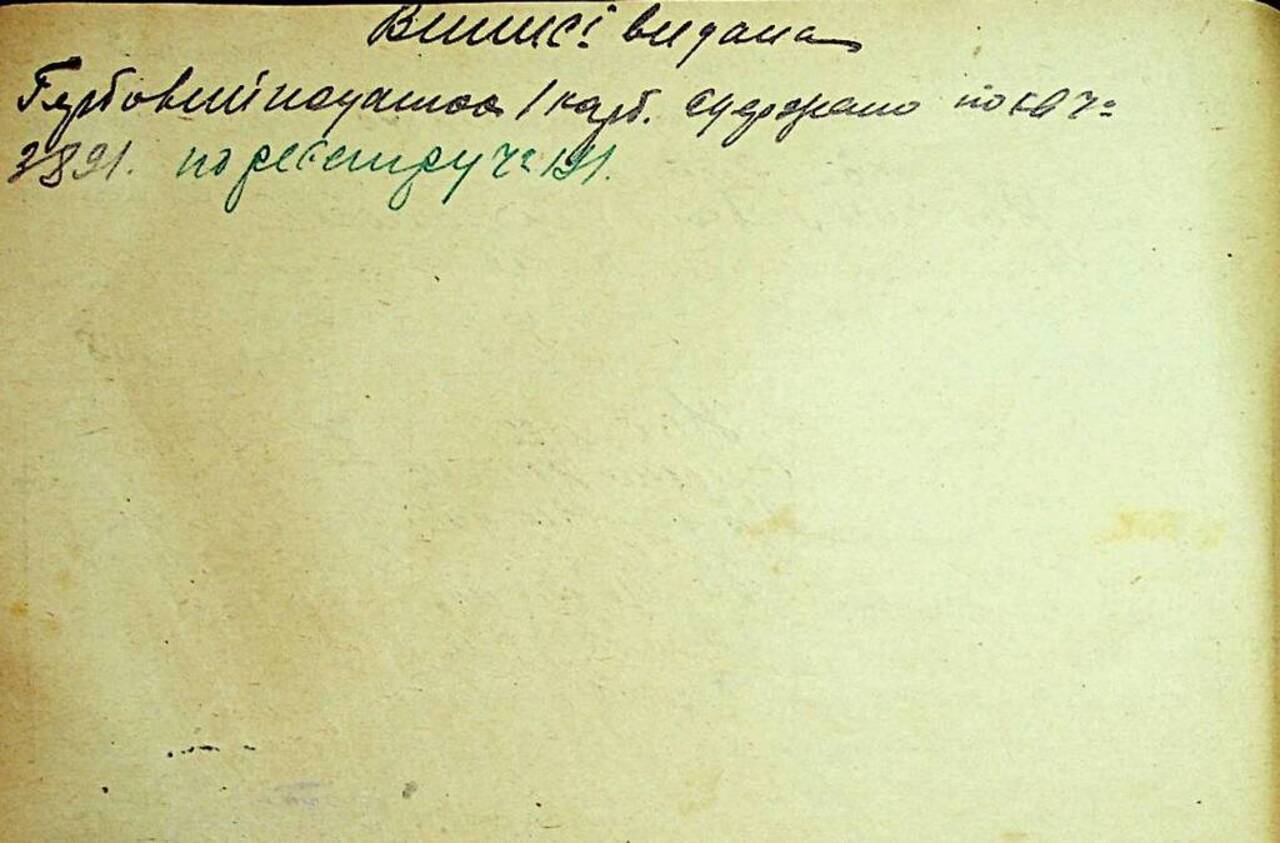 Виписі видана
Гербовий податок 1 карб. одержано по кв ч=
3891. по реєстру ч= 191.